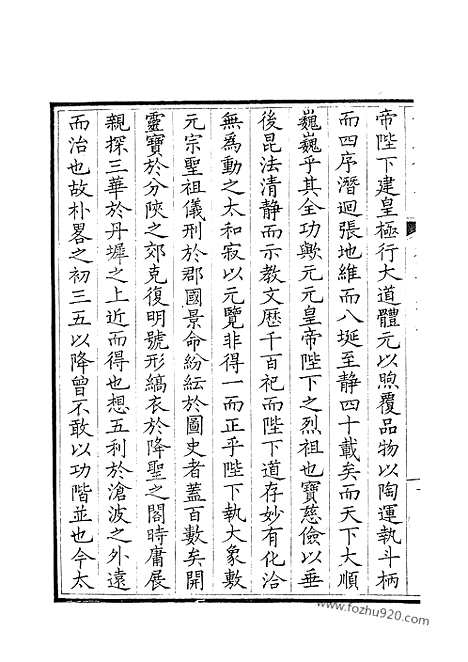 帝陛下建皇極行大道體元以煦覆品物以陶運執斗柄
而四序潛迴張地維而八埏至靜四十載矣而天下大順
巍巍乎其全功歟元元皇帝陛下之烈祖也寶慈儉以垂
後昆法清靜而示教文歴千百祀而陛下道存妙有化洽
無爲動之太和寂以元覽非得一而正乎陛下執大象敷
元宗聖祖儀刑於郡國景命紛紜於圖史者蓋百數矣開
靈寶於分陝之郊克復明號形縞衣於降聖之閣時庸展
親探三華於丹墀之上近而得也想五利於滄波之外遠
而治也故朴畧之初三五以降曾不敢以功階並也今太
www.fozhu920.com